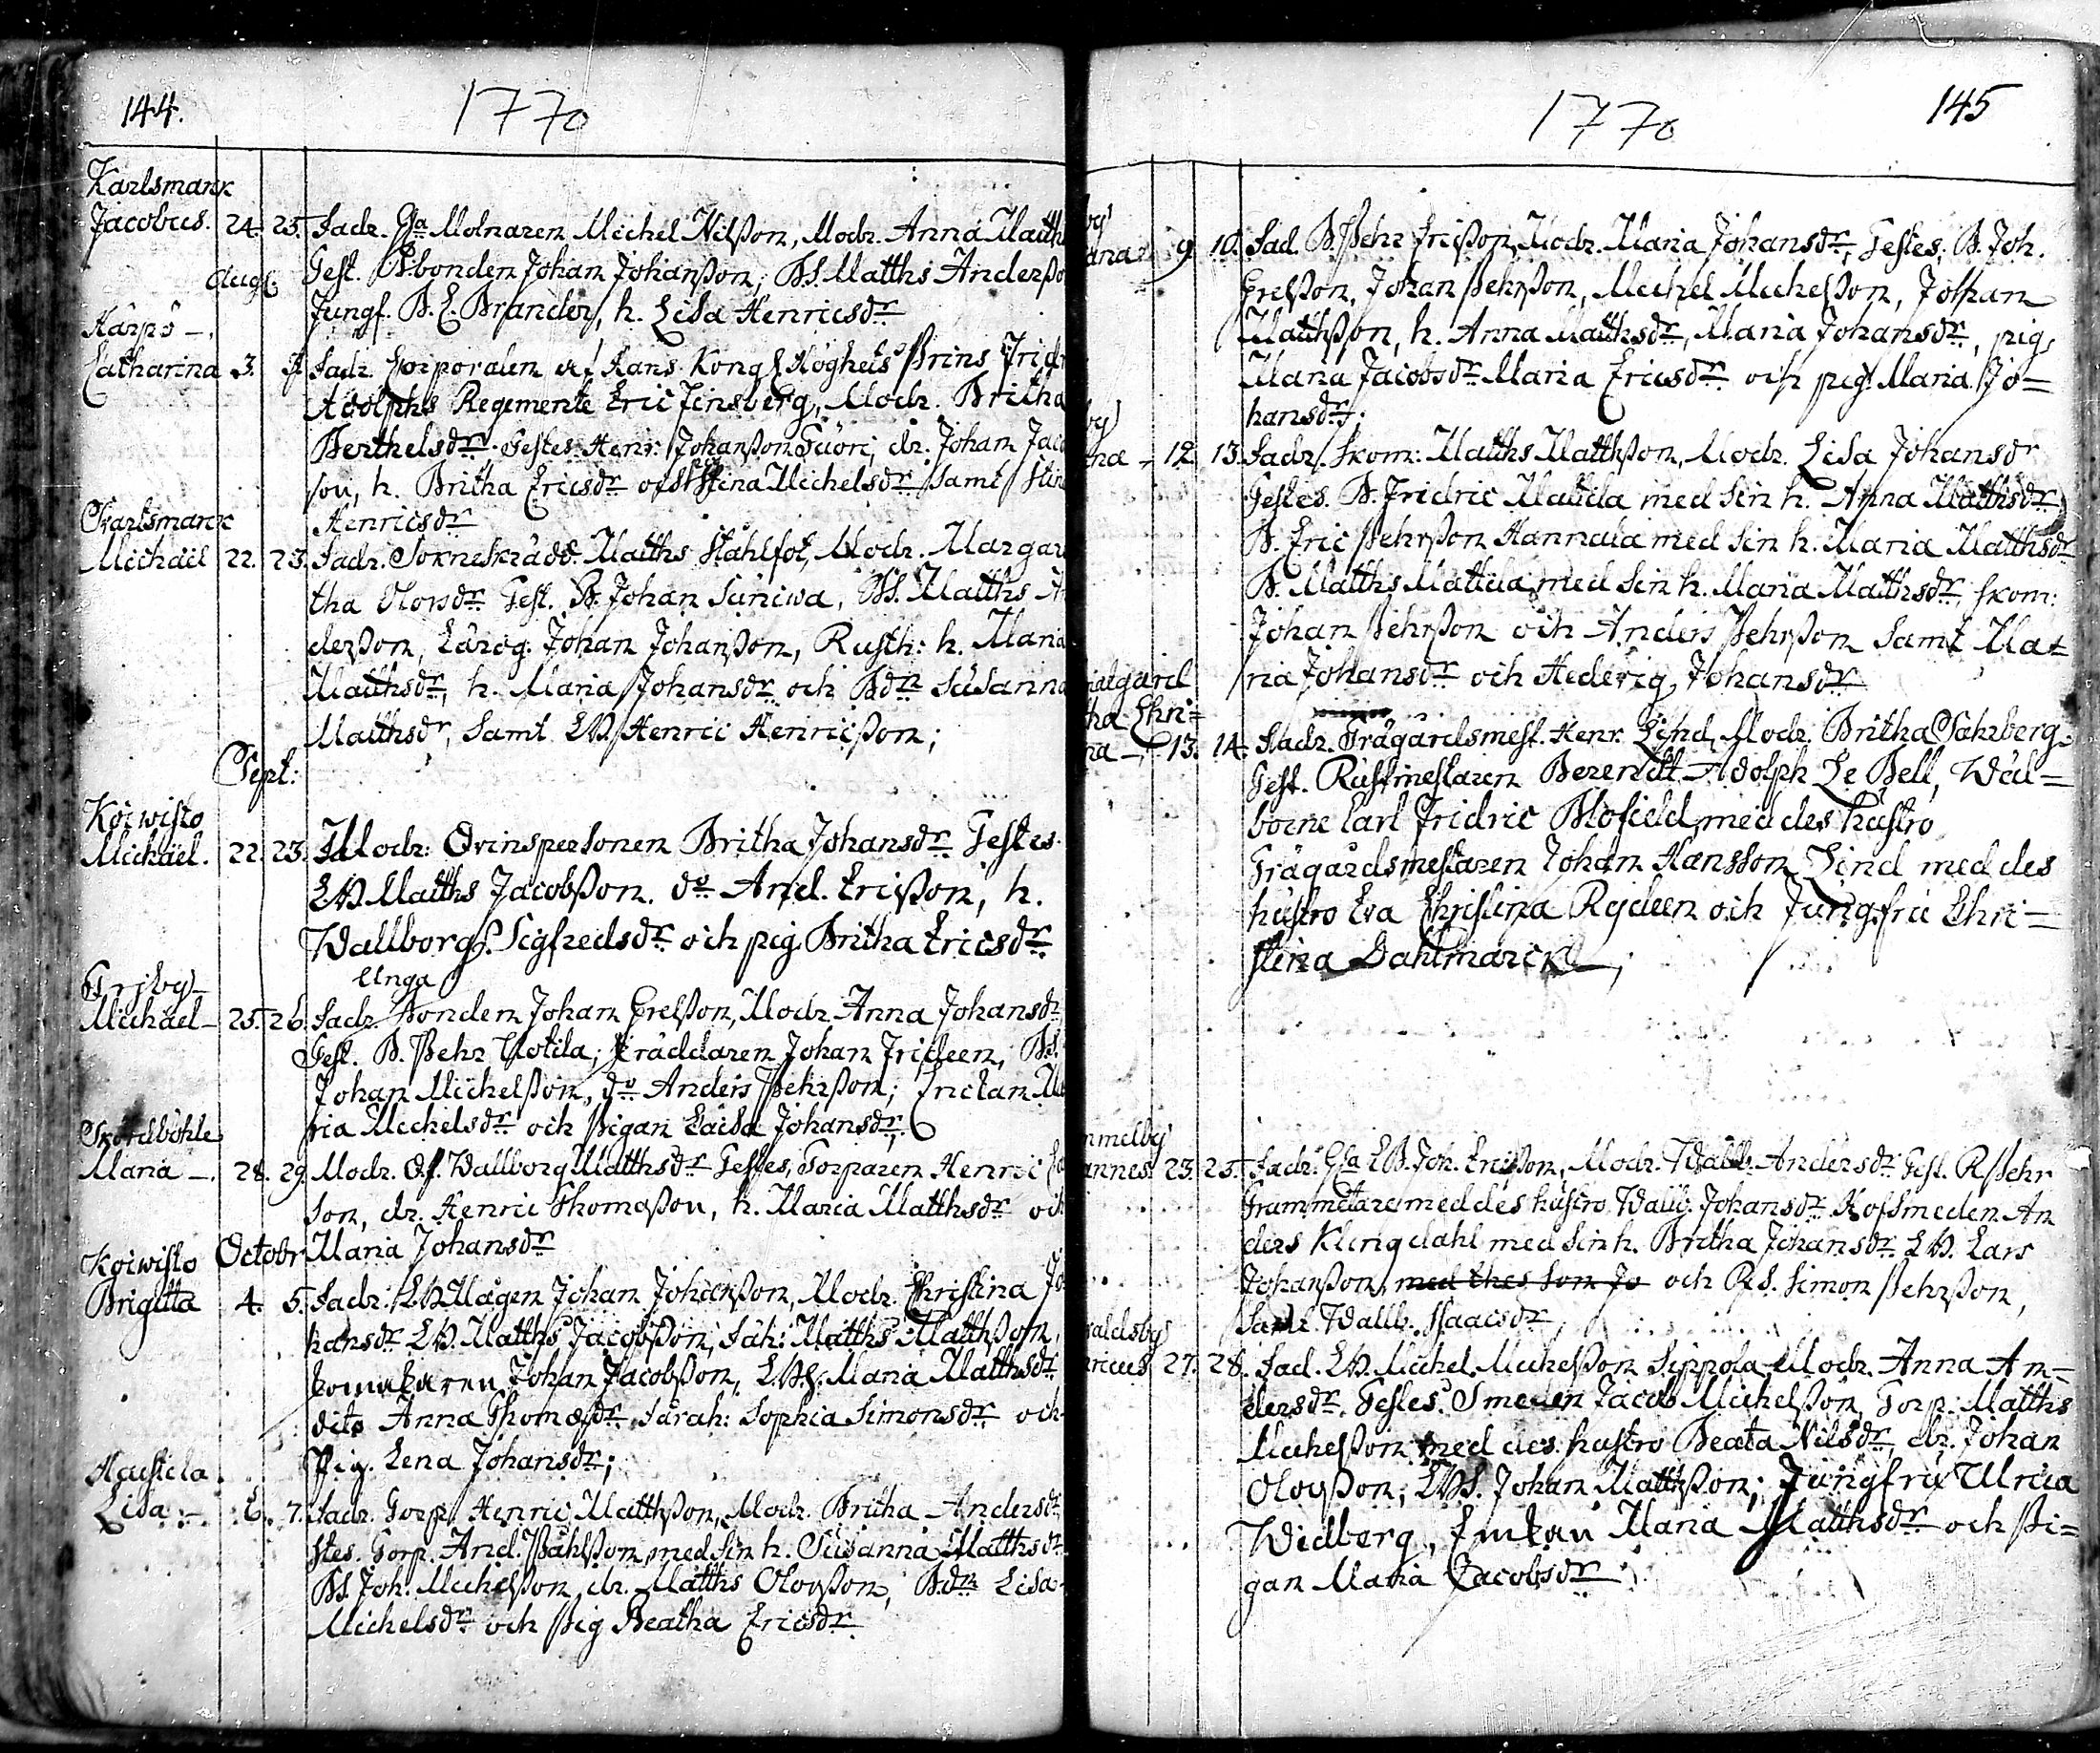 144.
1770
Karlsmark
Jacobus. 24. 25. Fadr. Gla Molnaren Michel Nilßon, Modr. Anna Matth
Test. Bbonden Johan Johanßon, BS. Matths Anderßo
Augs. Jungf. B. C. Brander, h. Lisa Henricsdr
Harpö –
Catharina 3. Fadr. Corporalen af Hans Kongl Höghets Prins Frid
Adolphs Regemente Eric Finsberg, Modr. Britha
Berthelsdr. Testes Henr. Johanßon Tuori, dr. Johan Jac
son, h. Britha Ericsdr och Stina Michelsdr samt Stin
Henricsdr
Karlsmark
Michael 22. 23. Fadr. Sokneskrädd. Matths Stahlfot, Modr. Margar
tha Olovsdr Test. B. Johan Suniwa, BS. Matths An
derßon, Johan Johanßon, Rusth: h. Maria
Matthsdr, h. Maria Johansdr och Bdn Susanna
Matthsdr, samt LB Henric Henricßon;
Sept:
Koiwisto
Michael. 22. 23. Modr: Qvinspersonen Britha Johansdr Testes
LB. Matths Jacobßon. do And. Ericßon, h.
Wallborg Sigfredsdr och pig. Britha Ericsdr
Unga
Friby –
Michael – 25. 26. Fadr. Bonden Johan Grelßon, Modr Anna Johansdr
Test. B. Pehr Uotila; Skräddaren Johan Frideen, BS.
Johan Michelßon, do Anders Pehrßon; Enckan Ma
ria Michelsdr och Pigan Caisa Johansdr.
Skördböhle
Maria –. 28. 29. Modr. Qf. Wallborg Matthsdr Testes, Torparen Henric
son, dr. Henric Thomaßon, h. Maria Matthsdr och
Maria Johansdr
Koiwisto Octobr
Brigitta 4. 5. Fadr. LBMågen Johan Johanßon, Modr. Christina Jo
hansdr LB. Matths Jacobßon, Matths Matthßon,
Johan Jacobßon, LBh. Maria Matthsdr
dito Anna Thomædr, Sarah: Sophia Simonsdr och
Pig. Lena Johansdr;
Haustela
Lisa –. 6. 7. Fadr. Torp. Henric Matthßon, Modr. Britha Andersdr
stes. Torp. And. Påhlßon med sin h. Susanna Matthsdr
BS. Joh. Michelßon, dr. Matths Olovßon, Bdn Lisa
Michelsdr och Pig Beatha Ericsdr
1770
145
by
9 10. Fad. B. Pehr Ericßon, Modr. Maria Johansdr, Testes, B. Joh.
Grelßon, Johan Pehrßon, Michel Michelßon, Johan
Matthßon, h. Anna Matthsdr, Maria Johansdr, pig.
Maria Jacobsdr Maria Ericsdr och pig. Maria Jo=
hansdr;
by
na – 12 13. Fadr. Skom: Matths Matthßon, Modr. Lisa Johansdr
Testes. B. Fridric Mattila med sin h. Anna Matthsdr
B. Eric Pehrßon Hannula med sin h. Maria Matthsdr
B. Matths Mattila med sin h. Maria Matthsdr, Skom:
Johan Pehrßon och Anders Pehrßon samt Ma=
ria Johansdr och Hedevig Johansdr
algard
tha Chri=
na – 13. 14. Fadr. Trägårdsmest. Henr. Lind, Modr. Britha Sahrberg.
Test. Rustmestaren Berendt Adolph Le Bell, Wäl=
borne Carl Fridric Blofield med des hustro
Trägårdsmestaren Johan Hansson Lind med des
hustro Eva Christina Rydeen och Jungfru Chri=
stina Dahlmarck;
mmelby
annes 23. 25. Fadr. Gla LB. Joh. Ericßon, Modr. Wallb. Andersdr Test. R. Pehr
Grammetare med des hustro Wallb. Johansdr Hofsmeden An
ders Klingdahl med sin h. Britha Johansdr LB. Lars
Johanßon med thes son Jo och RS. Simon Pehrßon,
Wallb. Isaacsdr
aldsby
ricus 27. 28. Fad. LB. Michel Michelßon Seppola, Modr. Anna An=
dersdr. Testes. Smeden Jacob Michelßon, Torp. Matths
Michelßon med des hustro Beata Nilsdr, dr. Johan
Olovßon, LBS. Johan Matthßon; Jungfru Ulrica
Widberg, Enkan Maria Matthsdr och Pi=
gan Maria Jacobsdr